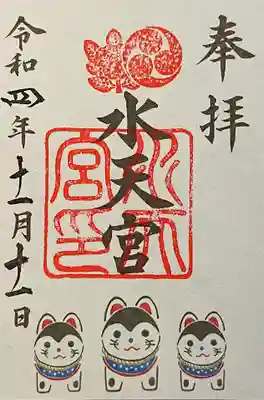 奉拝
水天宮
水天宮印
令和四年十一月十一日